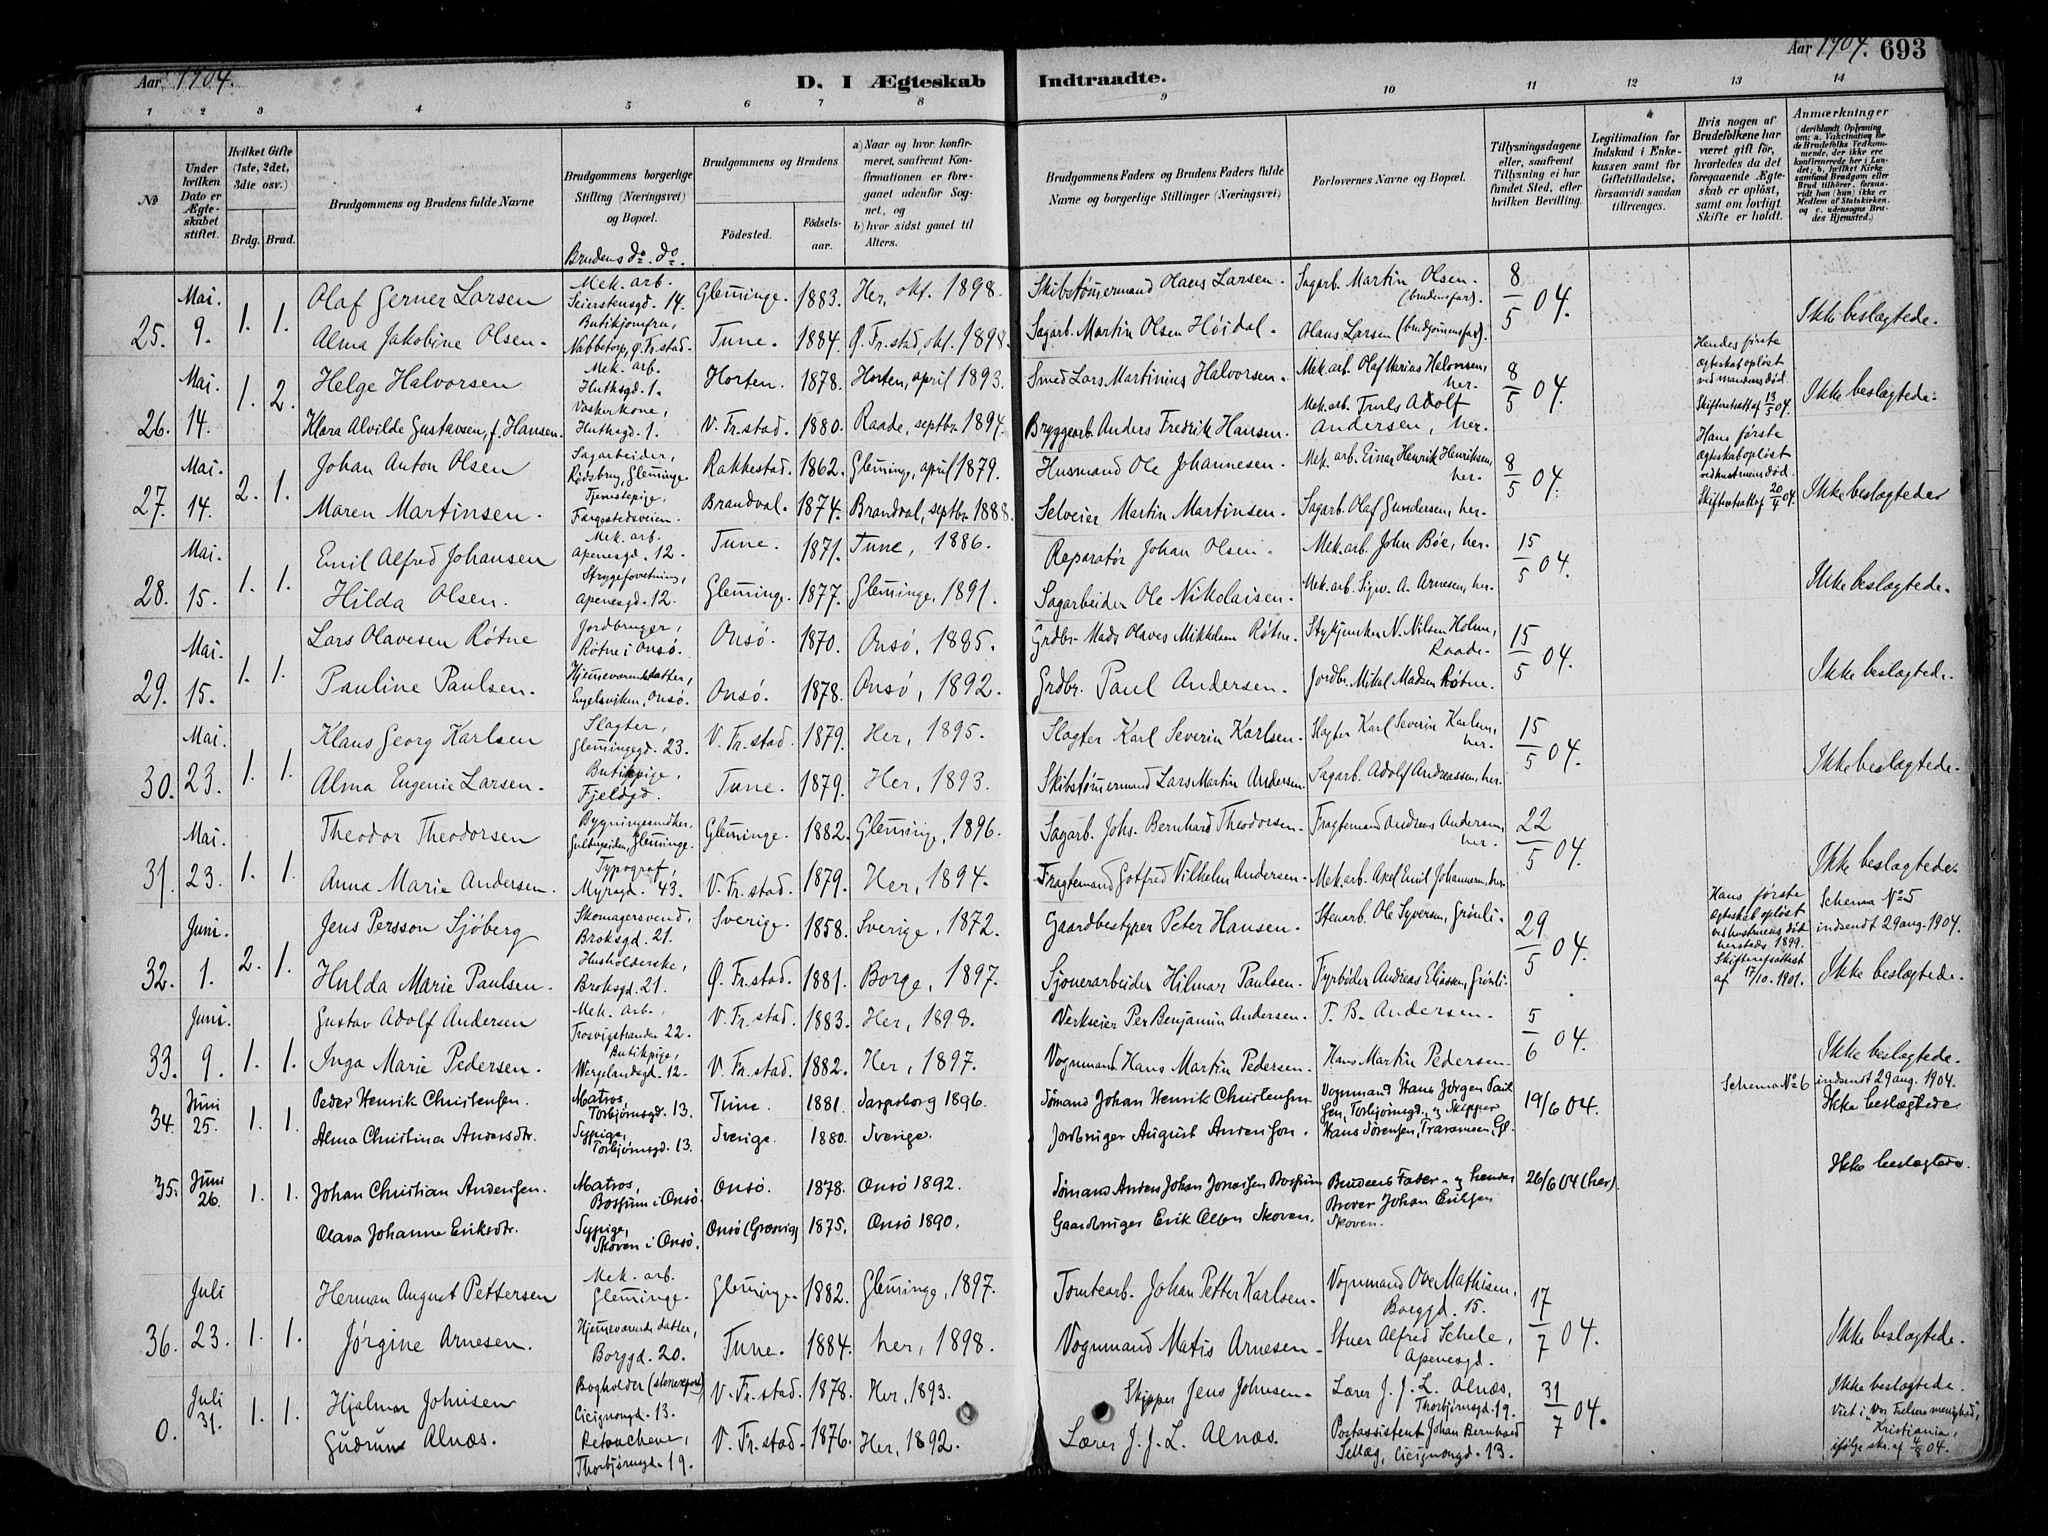 Aar 1904.
D. I Ægteskab Indtraadte.
Aar 1904. 693
1 2 3 4 5 6 7 8 9 10 11 12 13 14
No
Under hvilken Dato er Ægteskabet stiftet.
Hvilket Gifte (1ste, 2det, 3die osv.)
Brdg. Brud.
Brudgommens og Brudens fulde Navne
Brudgommens borgerlige Stilling (Næringsvei) og Bopæl.
Brudens do. do.
Brudgommens og Brudens
Födested. Födselsaar.
a) Naar og hvor konfirmeret, saafremt Konfirmationen er foregaaet udenför Sognet, og
b) hvor sidst gaaet til Alters.
Brudgommens Faders og Brudens Faders fulde Navne og borgerlige Stillinger (Næringsvei)
Forlovernes Navne og Bopæl.
Tillysningsdagene eller, saafremt Tillysning ei har fundet Sted, efter hvilken Bevilling.
Legitimation for Indskud i Enkekassen samt for Giftetilladelse, forsaavidt saadan tiltrænges.
Hvis nogen af Brudefolkene har været gift för, hvorledes da det foregaaende Ægteskab er oplöst, samt om lovligt Skifte er holdt.
Anmærkninger
(deriblandt Oplysning om: a. Vakcination for de Brudefolks Vedkommende, der ikke ere konfirmerede her i Landet; b. hvilket Kirkesamfund Brudgom eller Brud tilhörer, forsavidt han (hun) ikke er Medlem af Statskirken, og c. udensogns Brudes Hjemsted.)
25. Mai. 9. 1. 1. Olaf Gerner Larsen Mek. arb. Seierstensgd. 14. Glemminge. 1883. Her, okt. 1898. Skibstømmermand Hans Larsen. Sagarb. Martin Olsen. (brudens far). 8/5 04. Ikke beslægtede.
Alma Jakobine Olsen. Butikjomfru, Nabbetorp, Ø. Fr.stad. Tune. 1884. Ø. Fr.stad, okt. 1898. Sagarb. Martin Olsen Høidal. Olaus Larsen (brudgommens far).
26. Mai 14. 1. 2. Helge Halvorsen Mek. arb. Huthsgd. 1. Horten. 1878. Horten, april 1893. Smed Lars Martinius Halvorsen. Mek. arb. Olaf Marius Halvorsen, her. 8/5 04. Hendes første ægteskab opløst ved mandens død. Skifteratt. af 13/5 04. Ikke beslægtede.
Klara Alvilde Gustavsen, f. Hansen. Vaskerkone, Huthsgd. 1. V. Fr.stad. 1880. Raade, septbr. 1894. Bryggearb. Anders Fredrik Hansen. Mek. arb. Truls Adolf Andersen, her.
27. Mai 14. 2. 1. Johan Anton Olsen Sagarbeider, Rødsbrug, Glemminge. Rakkestad. 1862. Glemminge, april 1879. Husmand Ole Johannesen. Mek. arb. Einar Henrik Henriksen, her. 8/5 04. Hans første ægteskab opløst ved hustruens død. Skifteratt. af 20/4 04. Ikke beslægtede
Maren Martinsen. Tjenestepige, Færgestedsveien. Brandval. 1874. Brandval, septbr. 1888. Selveier Martin Martinsen. Sagarb. Olaf Gundersen, her.
28. Mai 15. 1. 1. Emil Alfred Johansen Mek. arb. Apenesgd. 12. Tune. 1871. Tune, 1886. Reparatør Johan Olsen. Mek. arb. John Bøe, her. 15/5 04. Ikke beslægtede.
Hilda Olsen. Strygeforretning, Apenesgd. 12. Glemminge. 1877. Glemminge, 1891. Sagarbeider Ole Nikolaisen. Mek. arb. Sigw. A. Arnesen, her.
29. Mai. 15. 1. 1. Lars Olavesen Røtne Jordbruger, Røtne i Onsø. Onsø. 1870. Onsø, 1885. Grdbr. Mads Olaves Mikkelsen Røtne. Stykjunker N. Nilsen Holm, Raade. 15/5 04. Ikke beslægtede.
Pauline Paulsen. Hjemmeværende datter, Engelsviken, Onsø. Onsø. 1878. Onsø, 1892. Grdbr. Paul Andersen. Jordbr. Mikal Madsen Røtne.
30. Mai. 23. 1. 1. Klaus Georg Karlsen Slagter, Glemmingegd. 23. V. Fr.stad. 1879. Her, 1895. Slagter Karl Severin Karlsen. Slagter Karl Severin Karlsen, her. 15/5 04. Ikke beslægtede.
Alma Eugenie Larsen. Butikpige, Fjeldgd. Tune. 1879. Her, 1893. Skibstømmermand Lars Martin Andersen. Sagarb. Adolf Andreassen, her.
31. Mai. 23. 1. 1. Theodor Theodorsen Bygningssnedker, Glemminge. Glemminge. 1882. Glemminge, 1896. Sagarb. Johs. Bernhard Theodorsen. Fragtemand Andreas Andersen, her. 22/5 04. Ikke beslægtede.
Anna Marie Andersen. Typograf, Myragd. 43. V. Fr.stad. 1879. Her, 1894. Fragtemand Gotfred Vilhelm Andersen. Mek. arb. Axel Emil Johannesen, her.
32. Juni. 1. 2. 1. Jens Persson Sjöberg Skomagersvend, Broksgd. 21. Sverige. 1858. Sverige, 1872. Gaardbestyrer Peter Hansen. Stenarb. Ole Syversen, Grönli. 29/5 04. Hans første ægteskab opløst ved hustruens død hersteds 1899. Skifteretsattest af 17/10. 1901. Schema No 5 indsendt 29 aug. 1904. Ikke beslægtede.
Hulda Marie Paulsen. Husholderske, Broksgd. 21. Ø. Fr.stad. 1881. Borge, 1897. Sjouerarbeider Hilmar Paulsen. Fyrbøder Andreas Eliassen, Grönli.
33. Juni. 9. 1. 1. Gustav Adolf Andersen Mek. arb., Trosvigstranden 22. V. Fr.stad. 1883. Her, 1898. Verkseier Per Benjamin Andersen. P. B. Andersen. 5/6 04. Ikke beslægtede.
Inga Marie Pedersen. Butikpige, Wergelandsgd. 12. V. Fr.stad. 1882. Her, 1897. Vognmand Hans Martin Pedersen. Hans Martin Pedersen
34. Juni 25. 1. 1. Peder Henrik Christensen. Matros, Torbjørnsgd. 13. Tune. 1881. Sarpsborg 1896. Sømand Johan Henrik Christensen. Vognmand Hans Jørgen Paulsen, Torbjørnsgd., og Skipper Hans Sørensen, Traraveien, Gl. 19/6 04. Schema No 6 indsendt 29 aug. 1904. Ikke beslægtede
Alma Christina Andersdtr. Sypige, Torbjørnsgd. 13. Sverige. 1880. Sverige. Jordbruger August Andersson.
35. Juni 26. 1. 1. Johan Christian Andersen. Matros, Bossum i Onsø. Onsø. 1878. Onsø 1892. Sømand Anders Johan Jonassen Bossum Brudens Fader og hendes Broder Johan Eriksen Skoven. 26/6 04 (her). Ikke beslægtede.
Olava Johanne Eriksdtr. Sypige, Skoven i Onsø. Onsø (Græsvig) 1875. Onsø 1890. Gaardbruger Erik Olsen Skoven.
36. Juli 23. 1. 1. Herman August Pettersen Mek. arb. Glemminge. Glemminge. 1882. Glemminge, 1897. Tomtearb. Johan Petter Karlsen. Vognmand Ove Mathisen, Borggd. 15. 17/7 04. Ikke beslægtede.
Jørgine Arnesen. Hjemmeværende datter, Borggd. 20. Tune. 1884. her, 1898. Vognmand Matis Arnesen. Stuer Alfred Schele, Apenesgd.
0. Juli 31. 1. 1. Hjalmar Johnsen Bogholder (stenexport) Cicignongd. 13. V. Fr.stad. 1878. Her, 1893. Skipper Jens Johnsen. Lærer J. J. L. Alnæs, Thorbjørnsgd. 19. 31/7 04. Ikke beslægtede. Viet i "Vor Frelsers menighed", Kristiania, ifølge skr. af 4/8 04.
Gudrun Alnæs. Retouchene, Thorbjørnsgd. 19. V. Fr.stad. 1876. Her, 1892. Lærer J. J. L. Alnæs. Postassistent Johan Bernhard Sellæg, Cicignongd. 13.